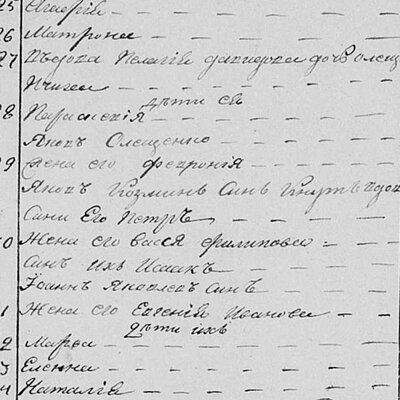 25 Агафiя
26 Матрона
27 Вдова Пелагiя дочь
28 Параскевiя
дѣти ея
Яковъ Олещенко
29 Жена его Феѳронiя
Яковъ Козминъ Сынъ
Его Петръ
30 Жена его Васса Филипова
Сынъ ихъ Исаакъ
Iоаннъ Яковлевъ Сынъ
1 Жена его Евгенiя Иванова
Дѣти ихъ
2 Марѳа
3 Еленна
4 Наталiя